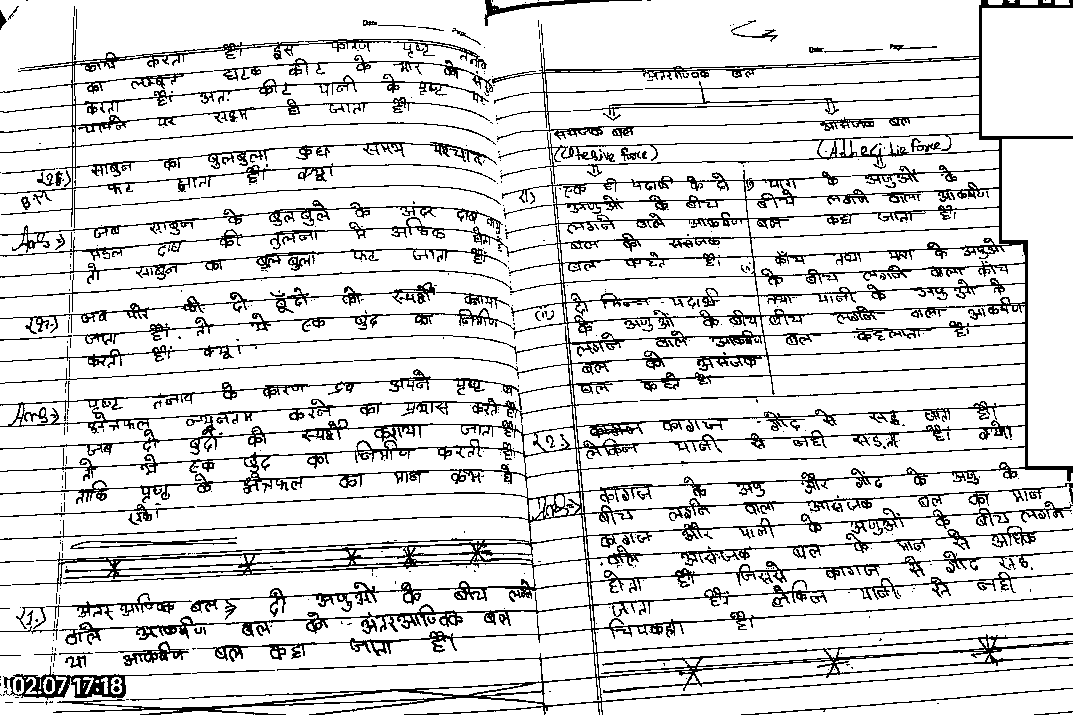 Date Page
कार्य करता है। इस कारण पृष्ट तनाव
का लम्बवत घटक कीट के भार को संतु
करता है। अतः कीट पानी के पृष्ट पर
चलने पर सक्षम हो जाता है।
साबुन का बुलबुला कुछ समय पश्चात
फट जाता है। क्यूं।
Ans⇒ जब साबुन के बुलबुले के अंदर दाब वायु
मंडल दाब की तुलना में अधिक होता है
तो साबुन का बुलबुला फट जाता है।
जब की दो बूँदो को स्पर्श कराया
जाता है। तो ये एक बुंद का निर्माण
करती है। क्यूं।
Ans⇒ पृष्ट तनाव के कारण द्रव अपने पृष्ट का
क्षेत्रफल न्यूनतम करने का प्रयास करते है
जब दो बुंदों को स्पर्श कराया जाता है
तो ये एक बुंद का निर्माण करती है।
ताकि पृष्ट के क्षेत्रफल का मान कम हो
सके।
(1.) अंतर आण्विक बल⇒ दो अणुओं के बीच लगने
वाले आकर्षण बल को अंतरआण्विक बल
या आकर्षण बल कहा जाता है।
02.07 17:18
Date Page
अंतराण्विक बल
ससंजक बल आसंजक बल
(Ohesive force) (Adhecitie force)
(i) एक ही पदार्थ के दो
अणुओं के बीच
लगने वाले आकर्षण
बल को ससंजक
बल कहते है।
(ii) दो भिन्न पदार्थ
के अणुओं के बीच
लगने वाले आकर्षण
बल को असंजक
बल कहते है।
(i) पारा के अणुओं के
बीच लगने वाला आकर्षण
बल कहा जाता है।
काँच तथा पारा के अणुओं
के बीच लगने वाला काँच
तथा पानी के अणुओं के
बीच लगने वाला आकर्षण
बल कहलाता है।
(2.) कागज गोंद से सट जाता है।
लेकिन पानी से नही सटता है। क्यो।
Ans⇒ कागज के अणु और गोंद के अणु के
बीच लगने वाला आसंजक बल का मान
कागज और पानी के अणुओं के बीच लगने
वाले आसंजक बल के मान से अधिक
होता है। जिससे कागज से गोंद सट
जाता है। लेकिन पानी से नही
चिपकता है।